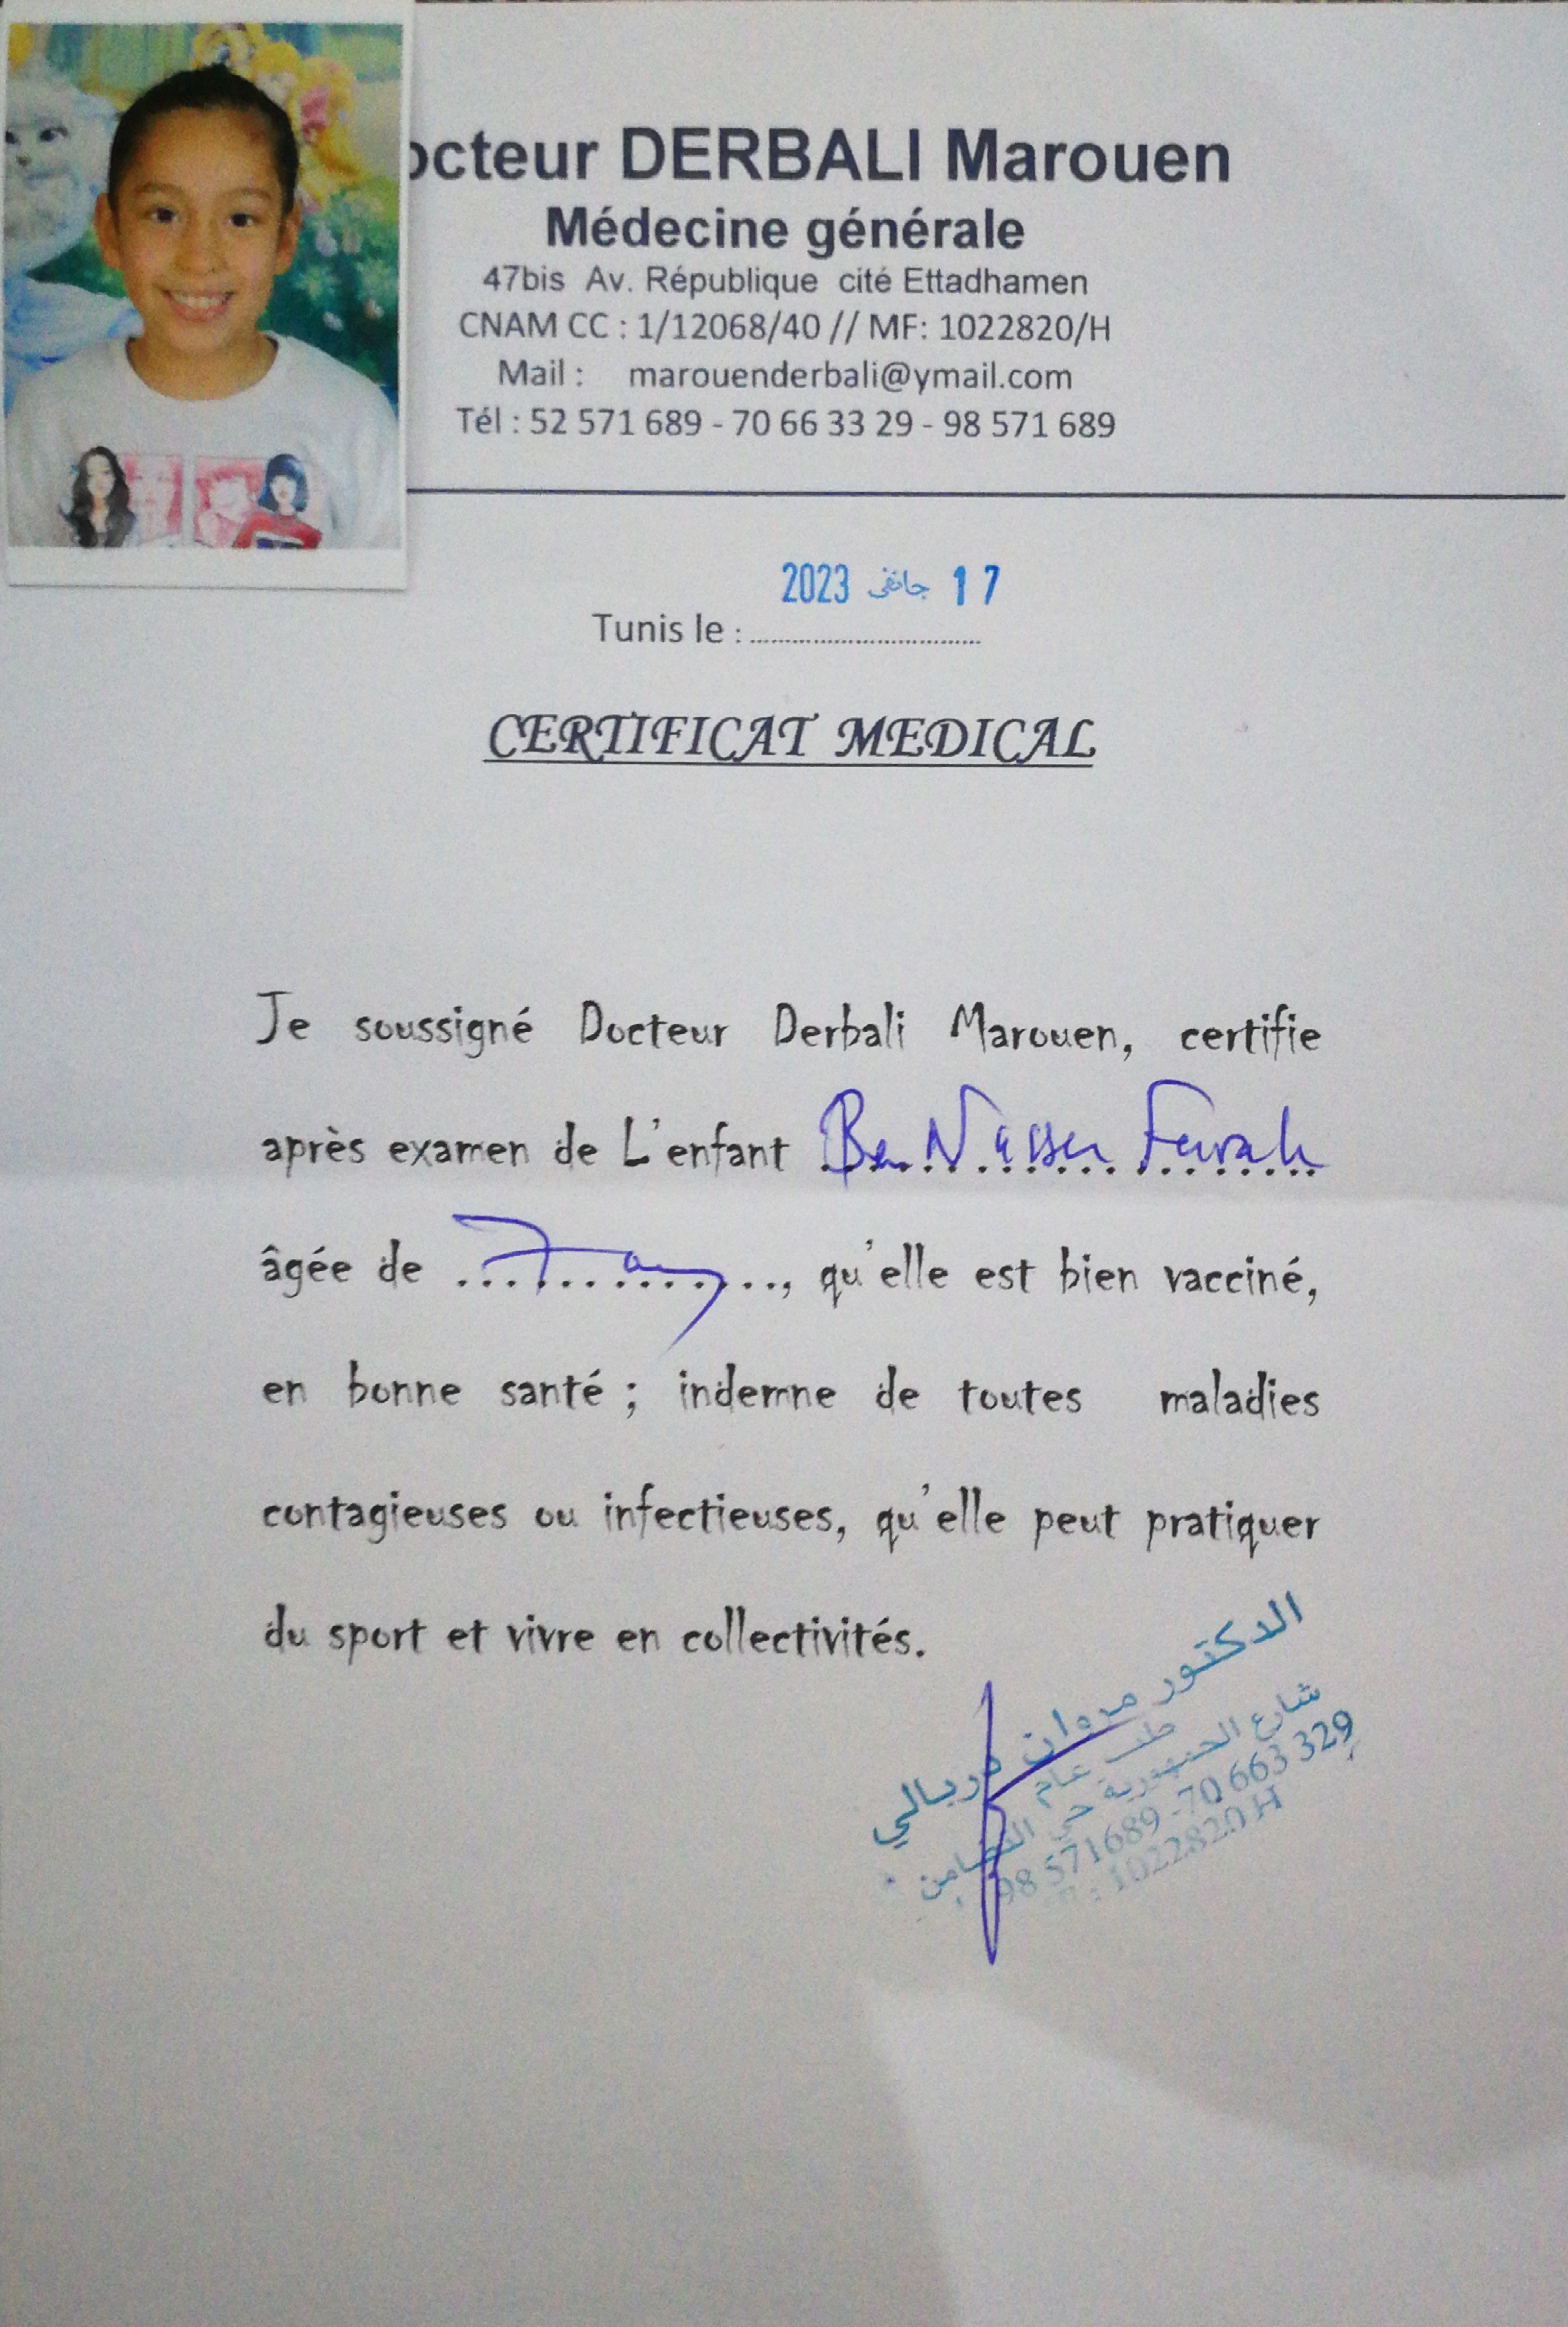 octeur DERBALI Marouen
Médecine générale
47bis Av. République cité Ettadhamen
CNAM CC : 1/12068/40 // MF: 1022820/H
Mail : marouenderbali@ymail.com
Tél : 52 571 689 - 70 66 33 29 - 98 571 689
17 جانفي 2023
Tunis le : ................................
CERTIFICAT MEDICAL
Je soussigné Docteur Derbali Marouen, certifie
après examen de L'enfant Ben Nasser Farah
âgée de 7 ans, qu'elle est bien vacciné,
en bonne santé ; indemne de toutes maladies
contagieuses ou infectieuses, qu'elle peut pratiquer
du sport et vivre en collectivités.
الدكتور مروان دربالي
طب عام
شارع الجمهورية حي التضامن
98 571689 -70 663 329
: 1022820 H